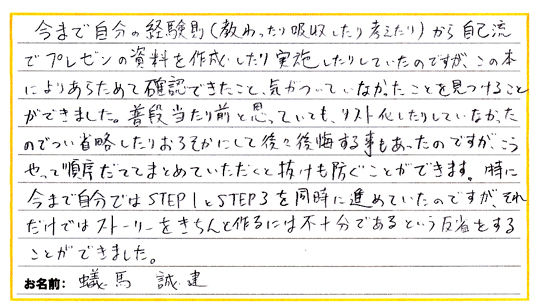 今まで自分の経験則(教わったり吸収したり考えたり)から自己流
でプレゼンの資料を作成したり実施したりしていたのですが、この本
によりあらためて確認できたこと、気がついていなかったことを見つけること
ができました。普段当たり前と思っていても、リスト化したりしていなかった
のでつい省略したりおろそかにして後々後悔する事もあったのですが、こう
やって順序だててまとめていただくと抜けも防ぐことができます。特に
今まで自分ではSTEP1とSTEP3を同時に進めていたのですが、それ
だけではストーリーをきちんと作るには不十分であるという反省をする
ことができました。
お名前: 蟻馬 誠建